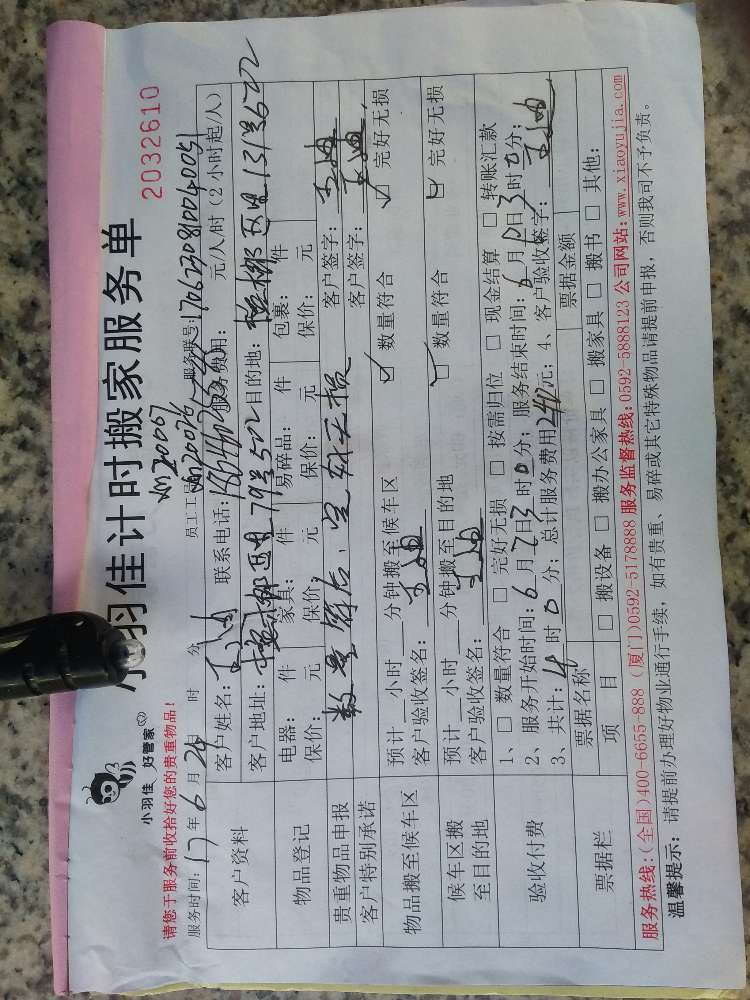 小羽佳 好管家
羽佳计时搬家服务单
2032610
请您于服务前收拾好您的贵重物品!
员工工号 NM20067
NM20026
服务时间:17年6月24日 时 分
服务联号:1706230810040051
客户资料
客户姓名: 联系电话: 服务费用: 元/人/时(2小时起/人)
客户地址: 79号502 目的地:
物品登记
电器: 件 家具: 件 易碎品: 件 包裹: 件
保价: 元 保价: 元 保价: 元 保价: 元
贵重物品申报
数量符合、完好无损
客户签字:
客户特别承诺
客户签字:
物品搬至候车区
预计 小时 分钟搬至候车区 ☑ 数量符合 ☑ 完好无损
客户验收签名:
候车区搬至目的地
预计 小时 分钟搬至目的地 ☑ 数量符合 ☑ 完好无损
客户验收签名:
验收付费
1、□ 数量符合 □ 完好无损 □ 按需归位 □ 现金结算 □ 转账汇款
2、服务开始时间:6月 日 时0分;服务结束时间:6月 日 时0分;
3、共计:4时0分;总计服务费用240元;4、客户验收签字:
票据栏
票据名称 票据金额
项 目 □ 搬设备 □ 搬办公家具 □ 搬家具 □ 搬书 □ 其他:
服务热线:(全国)400-6655-888 (厦门)0592-5178888 服务监督热线:0592-5888123 公司网站:www.xiaoyujia.com
温馨提示: 请提前办理好物业通行手续,如有贵重、易碎或其它特殊物品请提前申报,否则我司不予负责。